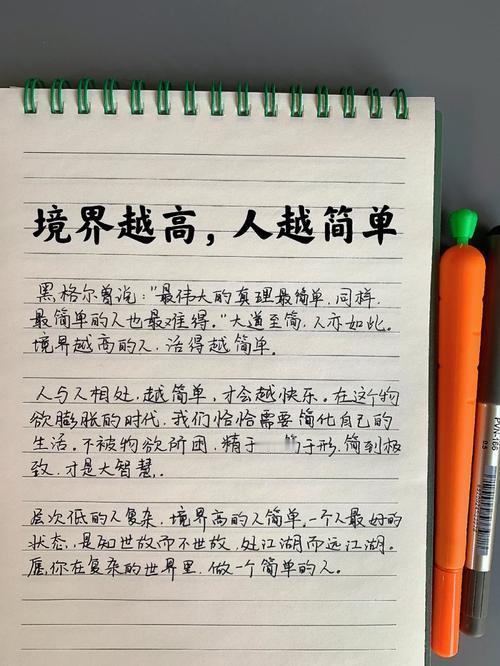 境界越高，人越简单
黑格尔曾说："最伟大的真理最简单，同样，
最简单的人也最难得。"大道至简，人亦如此。
境界越高的人，活得越简单。
人与人相处，越简单，才会越快乐。在这个物
欲膨胀的时代，我们恰恰需要简化自己的
生活。不被物欲所困，精于 简于形，简到极
致，才是大智慧。
层次低的人复杂，境界高的人简单，一个人最好的
状态，是知世故而不世故，处江湖而远江湖。
愿你在复杂的世界里，做一个简单的人。